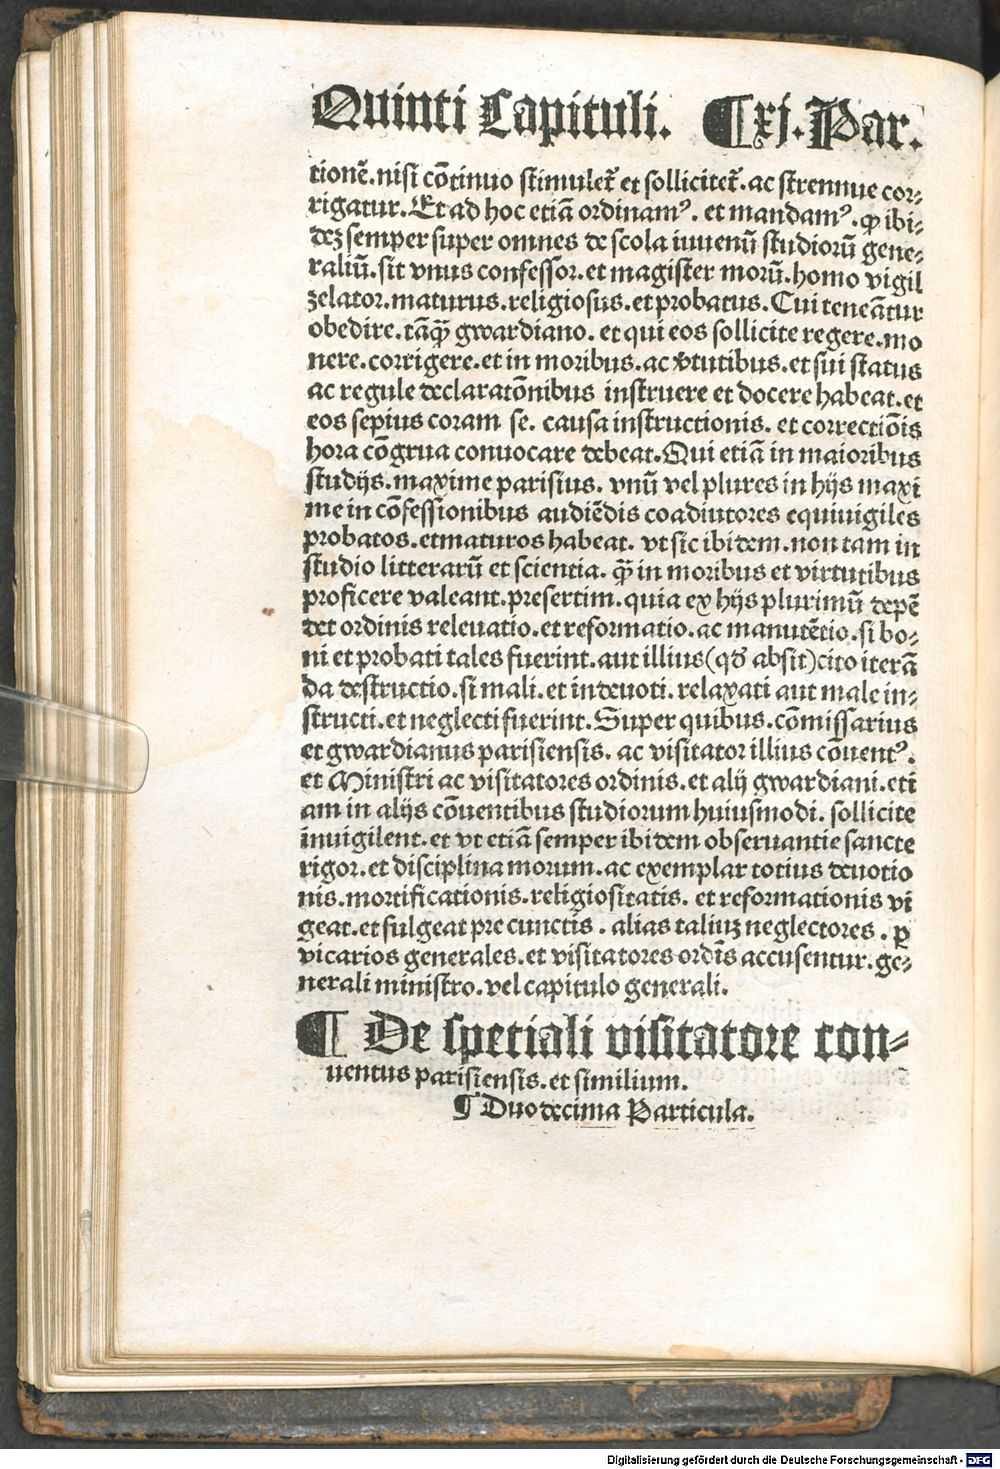 Quinti Capituli. ¶ xj. Par.
tionē. nisi cōtinuo stimulet᷑ et sollicitet᷑. ac strennue cor⸗
rigatur. Et ad hoc etiā ordinamꝰ. et mandamꝰ. ꝙ ibi⸗
deꝫ semper super omnes de scola iuuenū studiorū gene⸗
raliū. sit vnus confessor. et magister morū. homo vigil
zelator. maturus. religiosus. et probatus. Cui teneātur
obedire. tāꝙ̄ gwardiano. et qui eos sollicite regere. mo
nere. corrigere. et in moribus. ac v̓tutibus. et sui status
ac regule declaratōnibus instruere et docere habeat. et
eos sepius coram se. causa instructionis. et correctiōis
hora cōgrua conuocare debeat. Qui etiā in maioribus
studijs. maxime parisius. vnū vel plures in hijs maxi
me in cōfessionibus audiēdis coadiutores equiuigiles
probatos. et maturos habeat. vt sic ibidem. non tam in
studio litterarū et scientia. ꝙ̄ in moribus et virtutibus
proficere valeant. presertim. quia ex hijs plurimū depē
det ordinis releuatio. et reformatio. ac manutētio. si bo⸗
ni et probati tales fuerint. aut illius (qđ absit) cito iterā
da destructio. si mali. et indeuoti. relaxati aut male in⸗
structi. et neglecti fuerint. Super quibus. cōmissarius
et gwardianus parisiensis. ac visitator illius cōuentꝰ.
et Ministri ac visitatores ordinis. et alij gwardiani. eti
am in alijs cōuentibus studiorum huiusmodi. sollicite
inuigilent. et vt etiā semper ibidem obseruantie sancte
rigor. et disciplina morum. ac exemplar totius deuotio
nis. mortificationis. religiositatis. et reformationis vi
geat. et fulgeat pre cunctis. alias taliuꝫ neglectores. ꝑ
vicarios generales. et visitatores ordīs accusentur. ge⸗
nerali ministro. vel capitulo generali.
¶ De speciali visitatore con⸗
uentus parisiensis. et similium.
¶ Duodecima Particula.
Digitalisierung gefördert durch die Deutsche Forschungsgemeinschaft - DFG